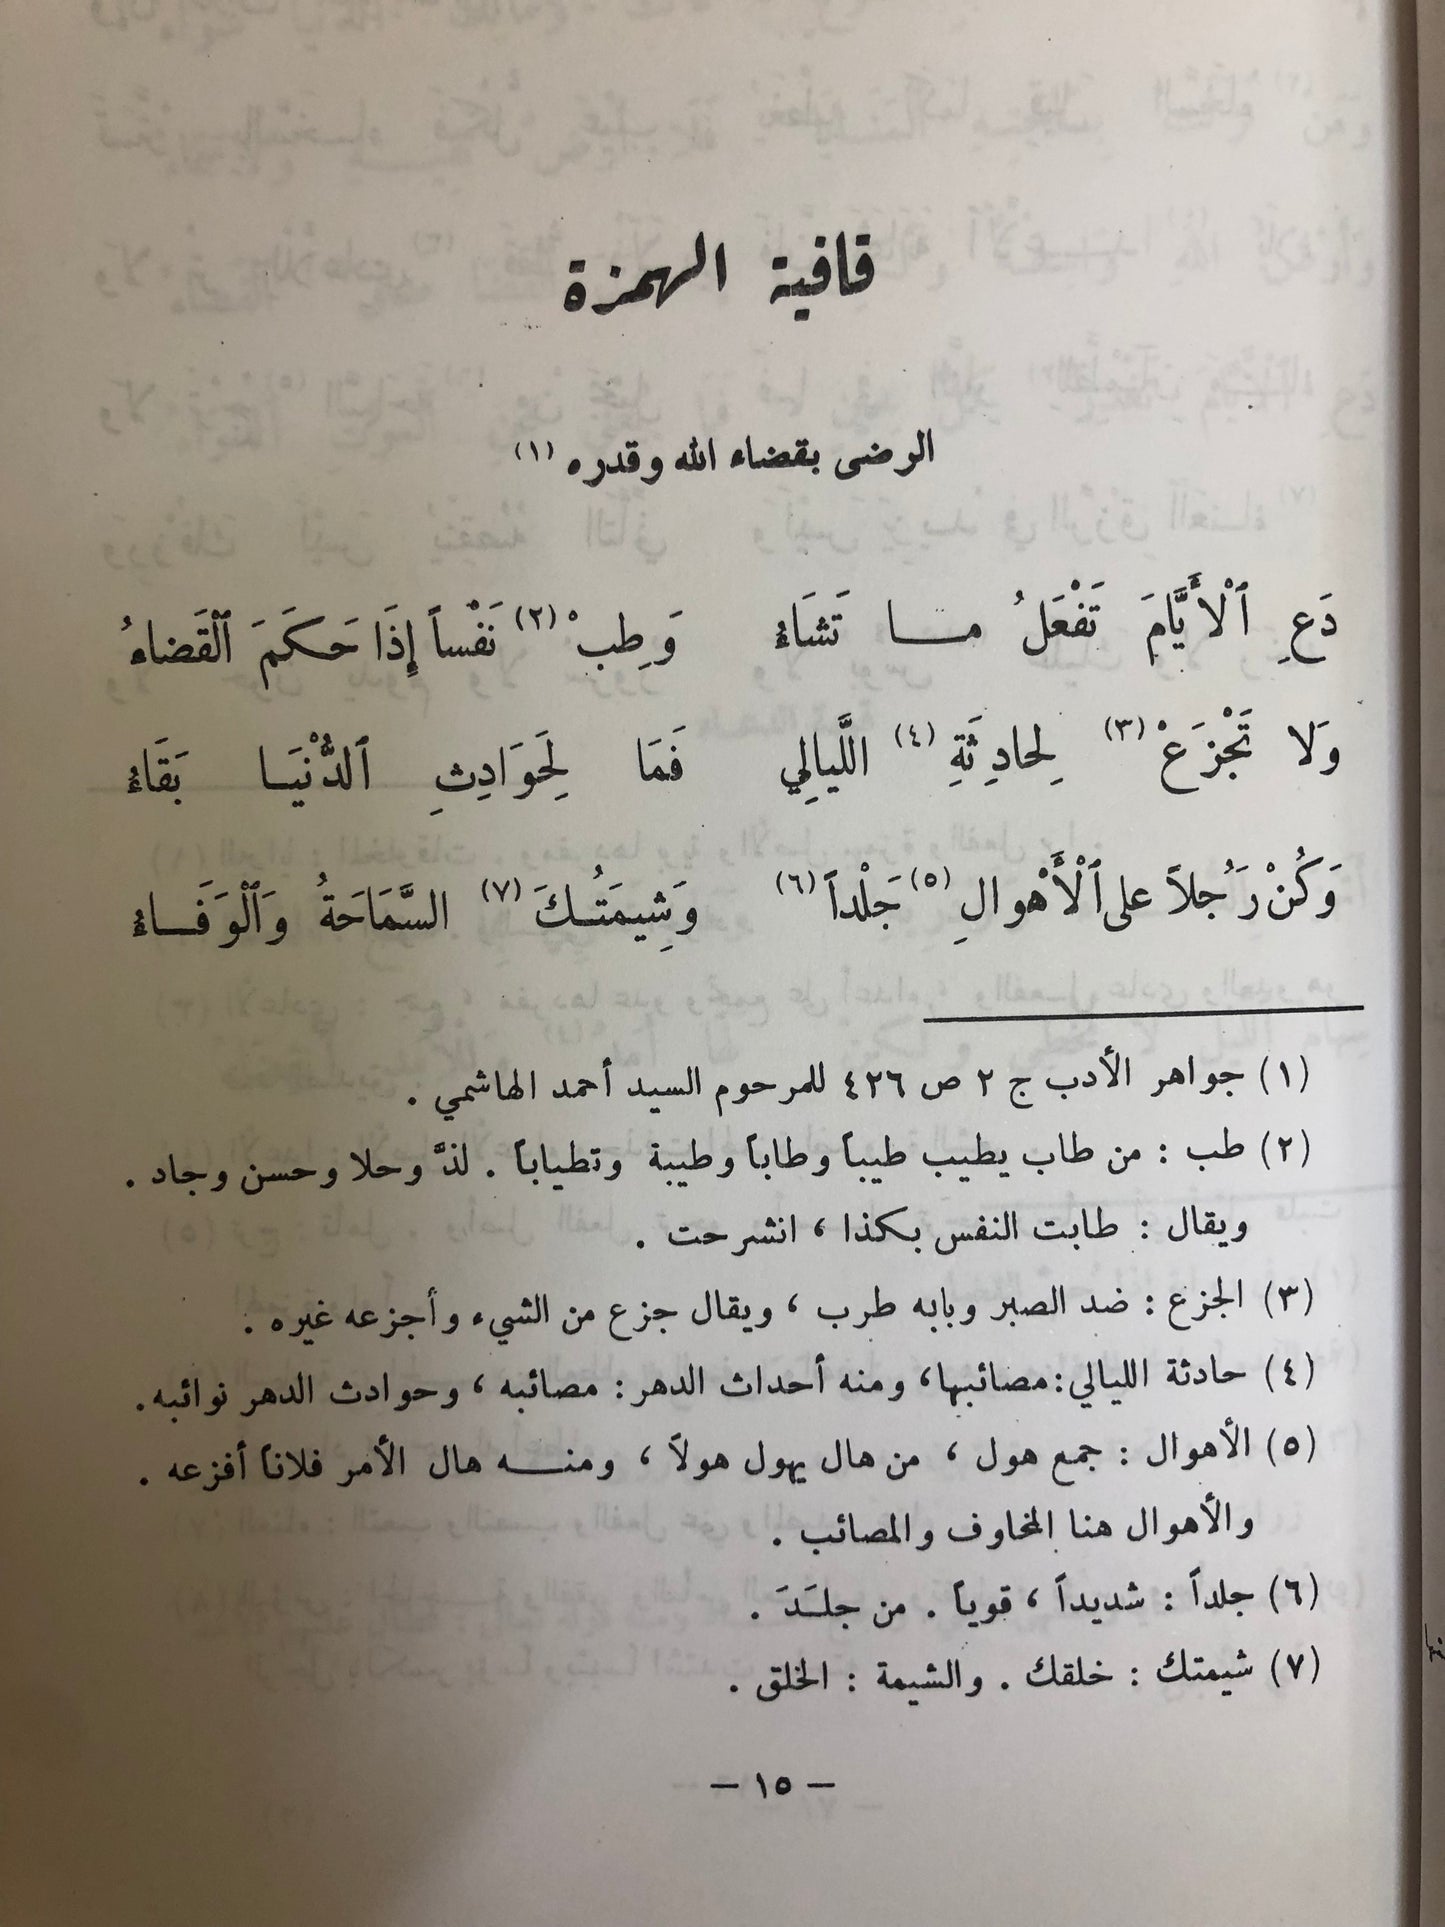 قافية الهمزة
الرضى بقضاء الله وقدره (١)
دَعِ ٱلْأَيَّامَ تَفْعَلُ مـــا تَشَاءُ وَطِبْ (٢) نَفْساً إِذَا حَكَمَ ٱلْقَضاءُ
وَلا تَجْزَعْ (٣) لِحادِثَةِ (٤) اللَّيالِي فَمَا لِحَوَادِثِ ٱلدُّنْيَـا بَقَاءُ
وَكُنْ رَجُلاً على ٱلْأَهْوالِ (٥) جَلْداً (٦) وَشِيمَتُـكَ (٧) السَّمَاحَةُ وَٱلْوَفَـاءُ
(١) جواهر الأدب ج ٢ ص ٤٢٦ للمرحوم السيد أحمد الهاشمي .
(٢) طب : من طاب يطيب طيباً وطاباً وطيبة وتطياباً . لذّ وحلا وحسن وجاد .
ويقال : طابت النفس بكذا ، انشرحت .
(٣) الجزع : ضد الصبر وبابه طرب ، ويقال جزع من الشيء وأجزعه غيره .
(٤) حادثة الليالي : مصائبها ، ومنه أحداث الدهر : مصائبه ، وحوادث الدهر نوائبه .
(٥) الأهوال : جمع هول ، من هال يهول هولاً ، ومنـــه هال الأمر فلاناً أفزعه .
والأهوال هنا المخاوف والمصائب .
(٦) جلداً : شديداً ، قوياً . من جلـَدَ .
(٧) شيمتك : خلقك . والشيمة : الخلق .
— ١٥ —